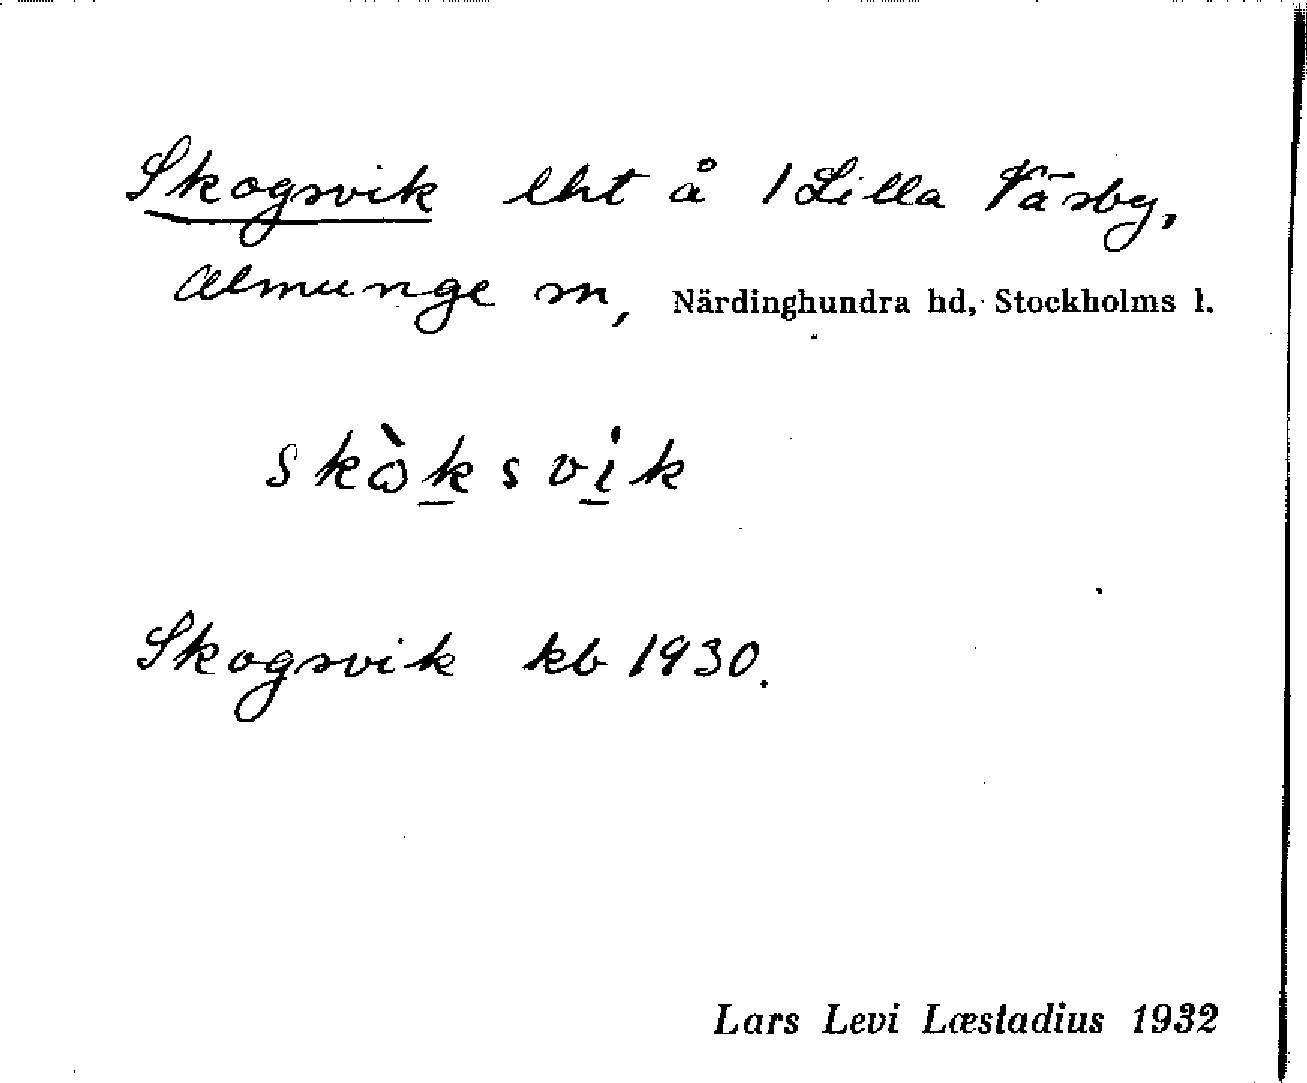 Skogsvik lht å 1 Lilla Väsby,
Almunge sn, Närdinghundra hd, Stockholms l.
skὼksvik
Skogsvik kb 1930.
Lars Levi Læstadius 1932